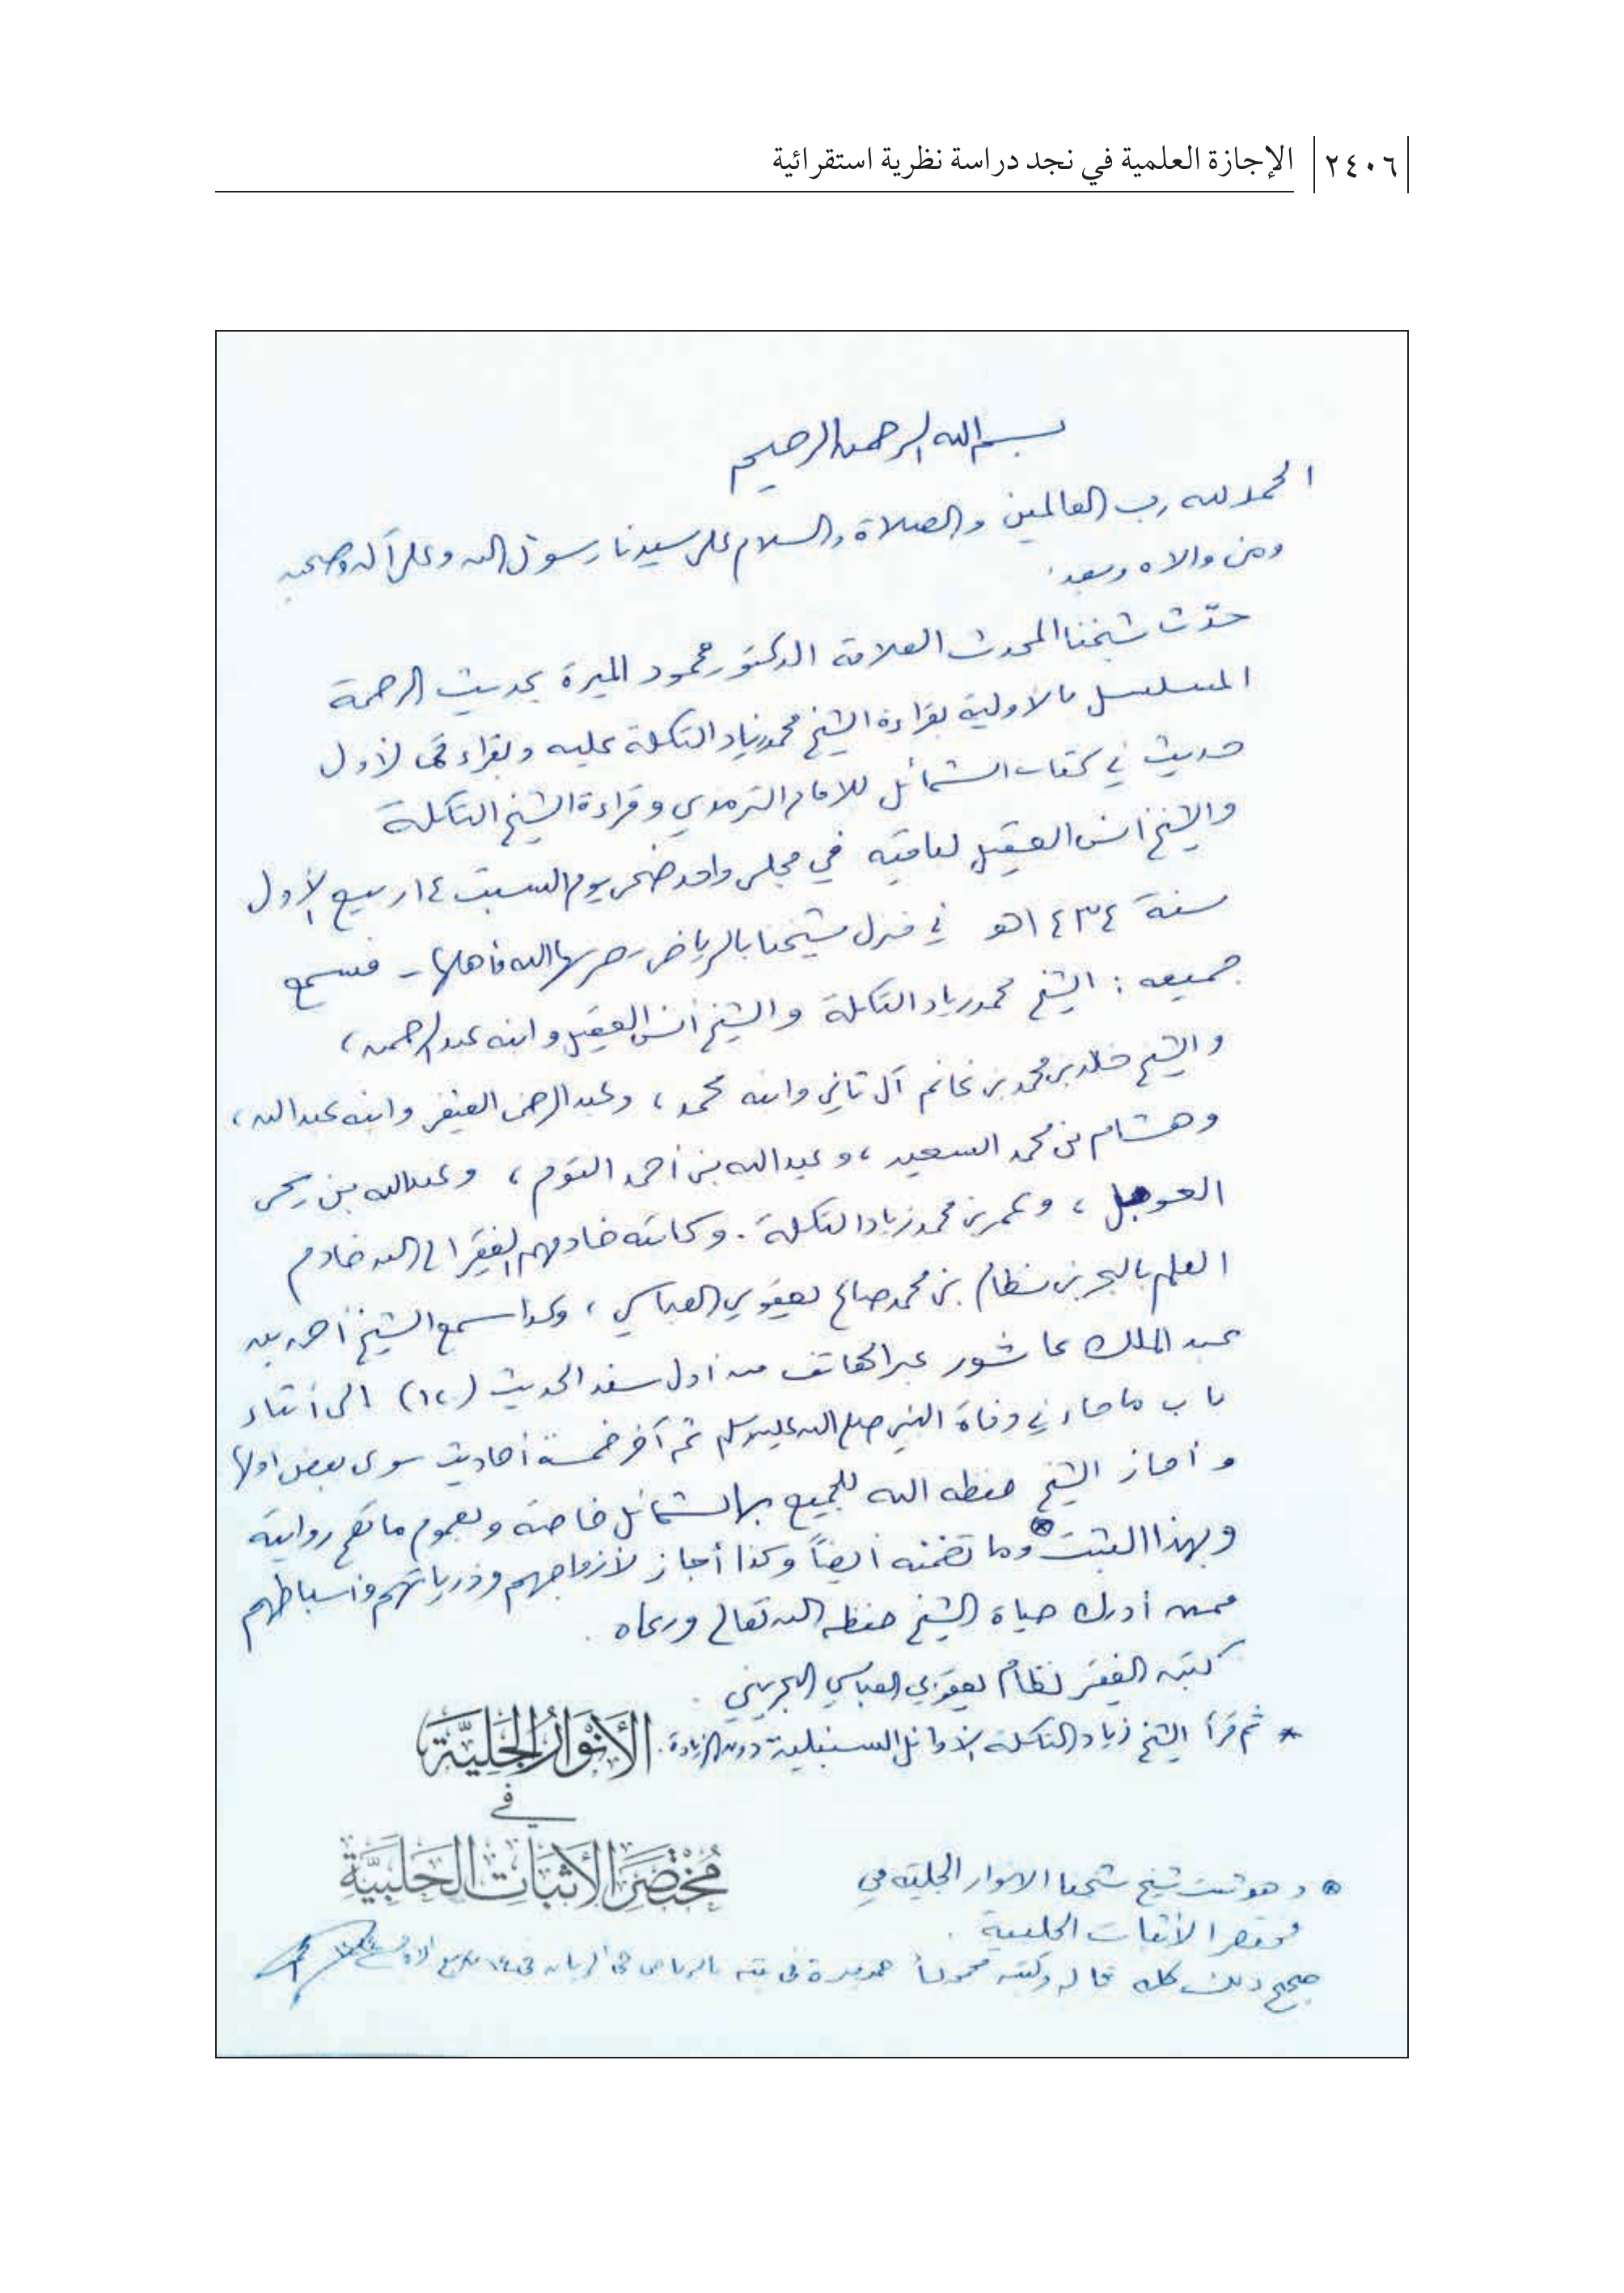 ٢٤٠٦ الإجازة العلمية في نجد دراسة نظرية استقرائية
بسم الله الرحمن الرحيم
الحمد لله رب العالمين والصلاة والسلام على سيدنا رسول الله وعلى آله وصحبه
ومن والاه وبعد:
حدّث شيخنا المحدث العلامة الدكتور محمود الميرة بحديث الرحمة
المسلسل بالاولية بقراءة الشيخ محمد زياد التكلة عليه وبقراءتي لأول
حديث في كتاب الشمائل للامام الترمذي وقراءة الشيخ التكلة
والشيخ أنس العقيل لباقيه في مجلس واحد ضحى يوم السبت ١٤ ربيع الأول
سنة ١٤٣٤هـ في منزل شيخنا بالرياض - حرسها الله وأهلها - فسمع
جميعه: الشيخ محمد زياد التكلة والشيخ أنس العقيل وابنه عبد الرحمن،
والشيخ خالد بن محمد بن غانم آل ثاني وابنه محمد، وعبد الرحمن وابنه عبد الله،
وهشام بن محمد السعيد، وعبد الله بن أحمد التوم، وعبد الله بن يحيى
العوبل، وعمر بن محمد زياد التكلة. وكاتبه خادمهم الفقير الى الله خادم
العلم بالبحرين نظام بن محمد صالح يعقوبي العباسي، وكذا سمع الشيخ أحمد بن
عبد الملك عاشور عبر الهاتف من أول سند الحديث (١٢) الى أثناء
باب ما جاء في وفاة النبي صلى الله عليه وسلم ثم آخر خمسة أحاديث سوى بعض اولها
وأجاز الشيخ حفظه الله للجميع بالشمائل خاصة وبعموم ما تصح روايته
وبهذا الثبت وما تضمنه أيضاً وكذا أجاز لأزواجهم وذرياتهم وأسباطهم
ممن أدرك حياة الشيخ حفظه الله تعالى ورعاه.
كتبه الفقير نظام يعقوبي العباسي البحريني.
* ثم قرأ الشيخ زياد التكلة الأوائل السنبلية دون الزيادة.
الأَنْوَارُ الجَلِيَّة
في
مُخْتَصَرِ الأَثْبَاتِ الحَلَبِيَّةِ
* وهو ثبت شيخ شيخنا الانوار الجلية في
مختصر الأثبات الحلبية.
صحيح ذلك كله قاله وكتبه محمود أحمد ميرة في بيته بالرياض في ١٤ ربيع الأول